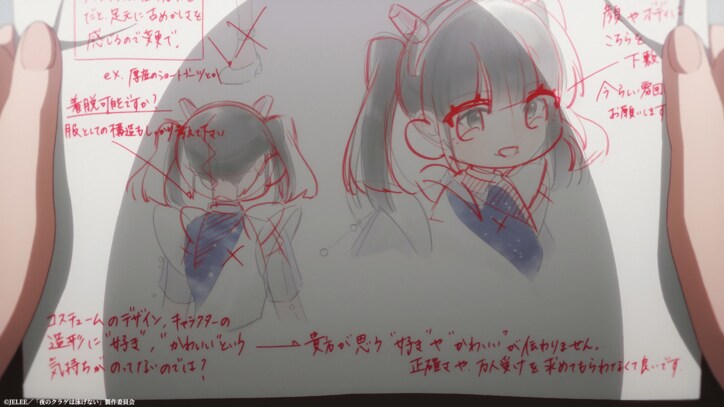 だと、足元に古めかしさを
感じるので変更で。
ex. 厚底のショートブーツとか
着脱可能ですか?
服としての構造もしっかり考えて下さい
顔やボディは
こちらを
下敷
今らしい雰囲
お願いします
コスチュームのデザイン、キャラクターの
造形に"好き"、"かわいい"という
気持ちがのってないのでは?
貴方が思う"好き"や"かわいい"が伝わりません。
正確さや、万人受けを求めてもらわなくて良いです。
©JELEE/「夜のクラゲは泳げない」製作委員会